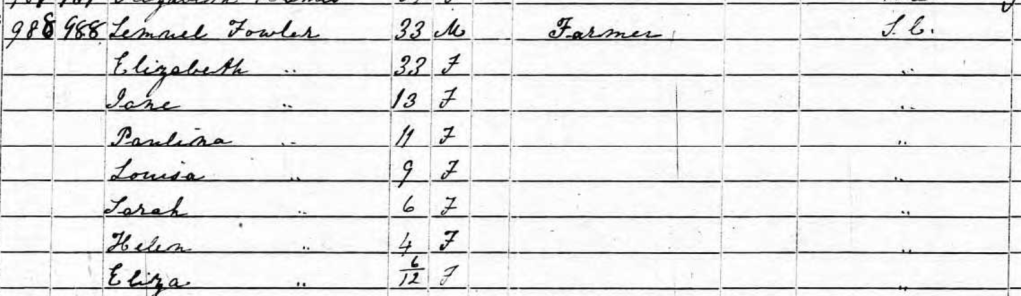 988 988 Lemuel Fowler 33 M Farmer S. C.
Elizabeth " 33 F "
Jane " 13 F "
Paulina " 11 F "
Louisa " 9 F "
Sarah " 6 F "
Helen " 4 F "
Eliza " 6/12 F "